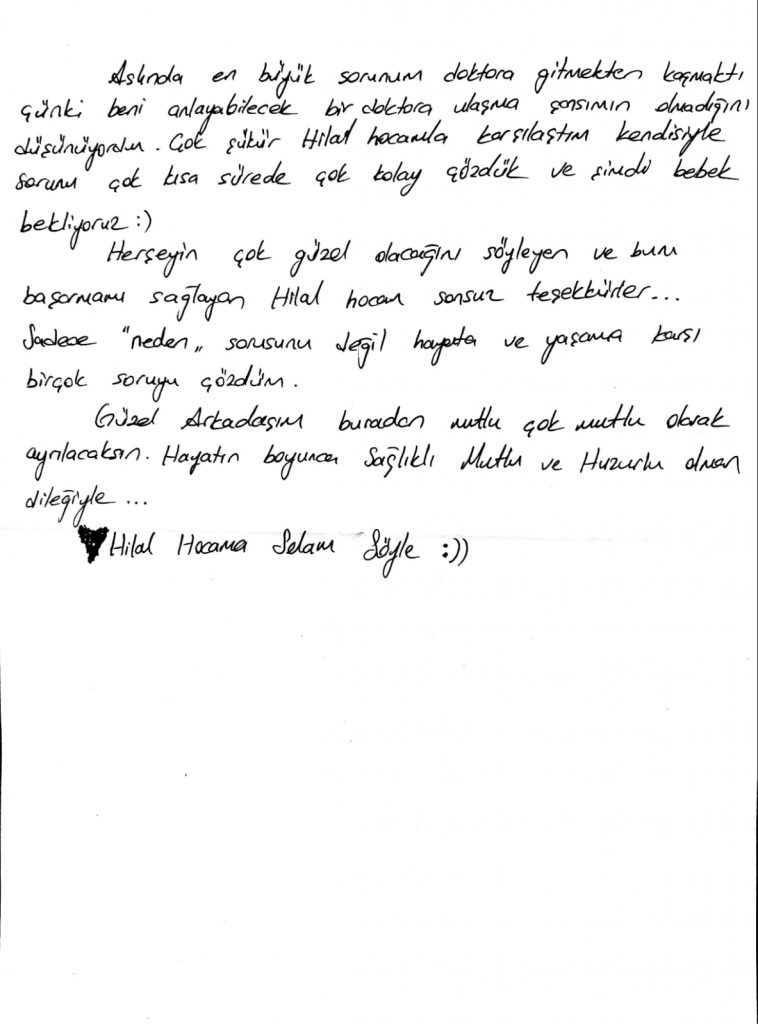 Aslında en büyük sorunum doktora gitmekten kaçmaktı
çünki beni anlayabilecek bir doktora ulaşma şansımın olmadığını
düşünüyordum. Çok şükür Hilal hocamla karşılaştım kendisiyle
sorunu çok kısa sürede çok kolay çözdük ve şimdi bebek
bekliyoruz :)
Herşeyin çok güzel olacağını söyleyen ve bunu
başarmamı sağlayan Hilal hocam sonsuz teşekkürler...
Sadece "neden„ sorusunu değil hayata ve yaşama karşı
birçok soruyu çözdüm.
Güzel Arkadaşım buradan mutlu çok mutlu olarak
ayrılacaksın. Hayatın boyunca Sağlıklı Mutlu ve Huzurlu olman
dileğiyle ...
♥Hilal Hocama Selam Söyle :))